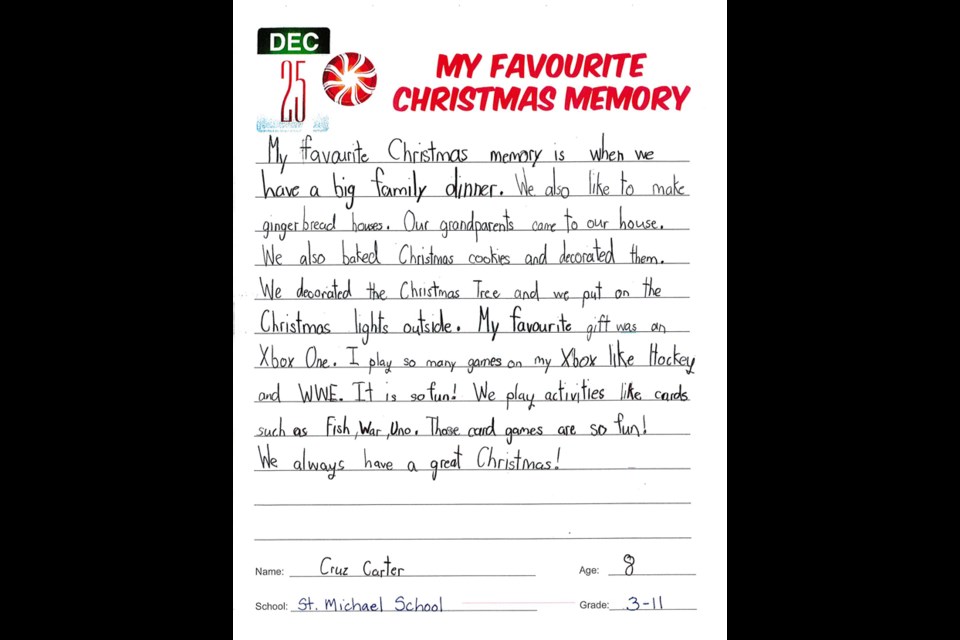 DEC
25
MY FAVOURITE
CHRISTMAS MEMORY
My favourite Christmas memory is when we
have a big family dinner. We also like to make
gingerbread houses. Our grandparents came to our house.
We also baked Christmas cookies and decorated them.
We decorated the Christmas Tree and we put on the
Christmas lights outside. My favourite gift was an
Xbox One. I play so many games on my Xbox like Hockey
and WWE. It is so fun! We play activities like cards
such as Fish, War, Uno. Those card games are so fun!
We always have a great Christmas!
Name: Cruz Carter Age: 8
School: St. Michael School Grade: 3-11